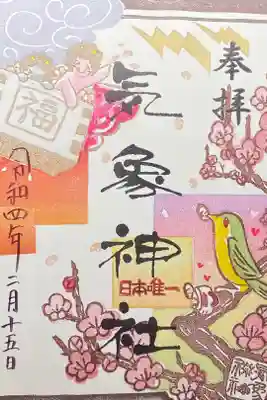 奉拝
気象神社
日本唯一
福
令和四年二月十五日